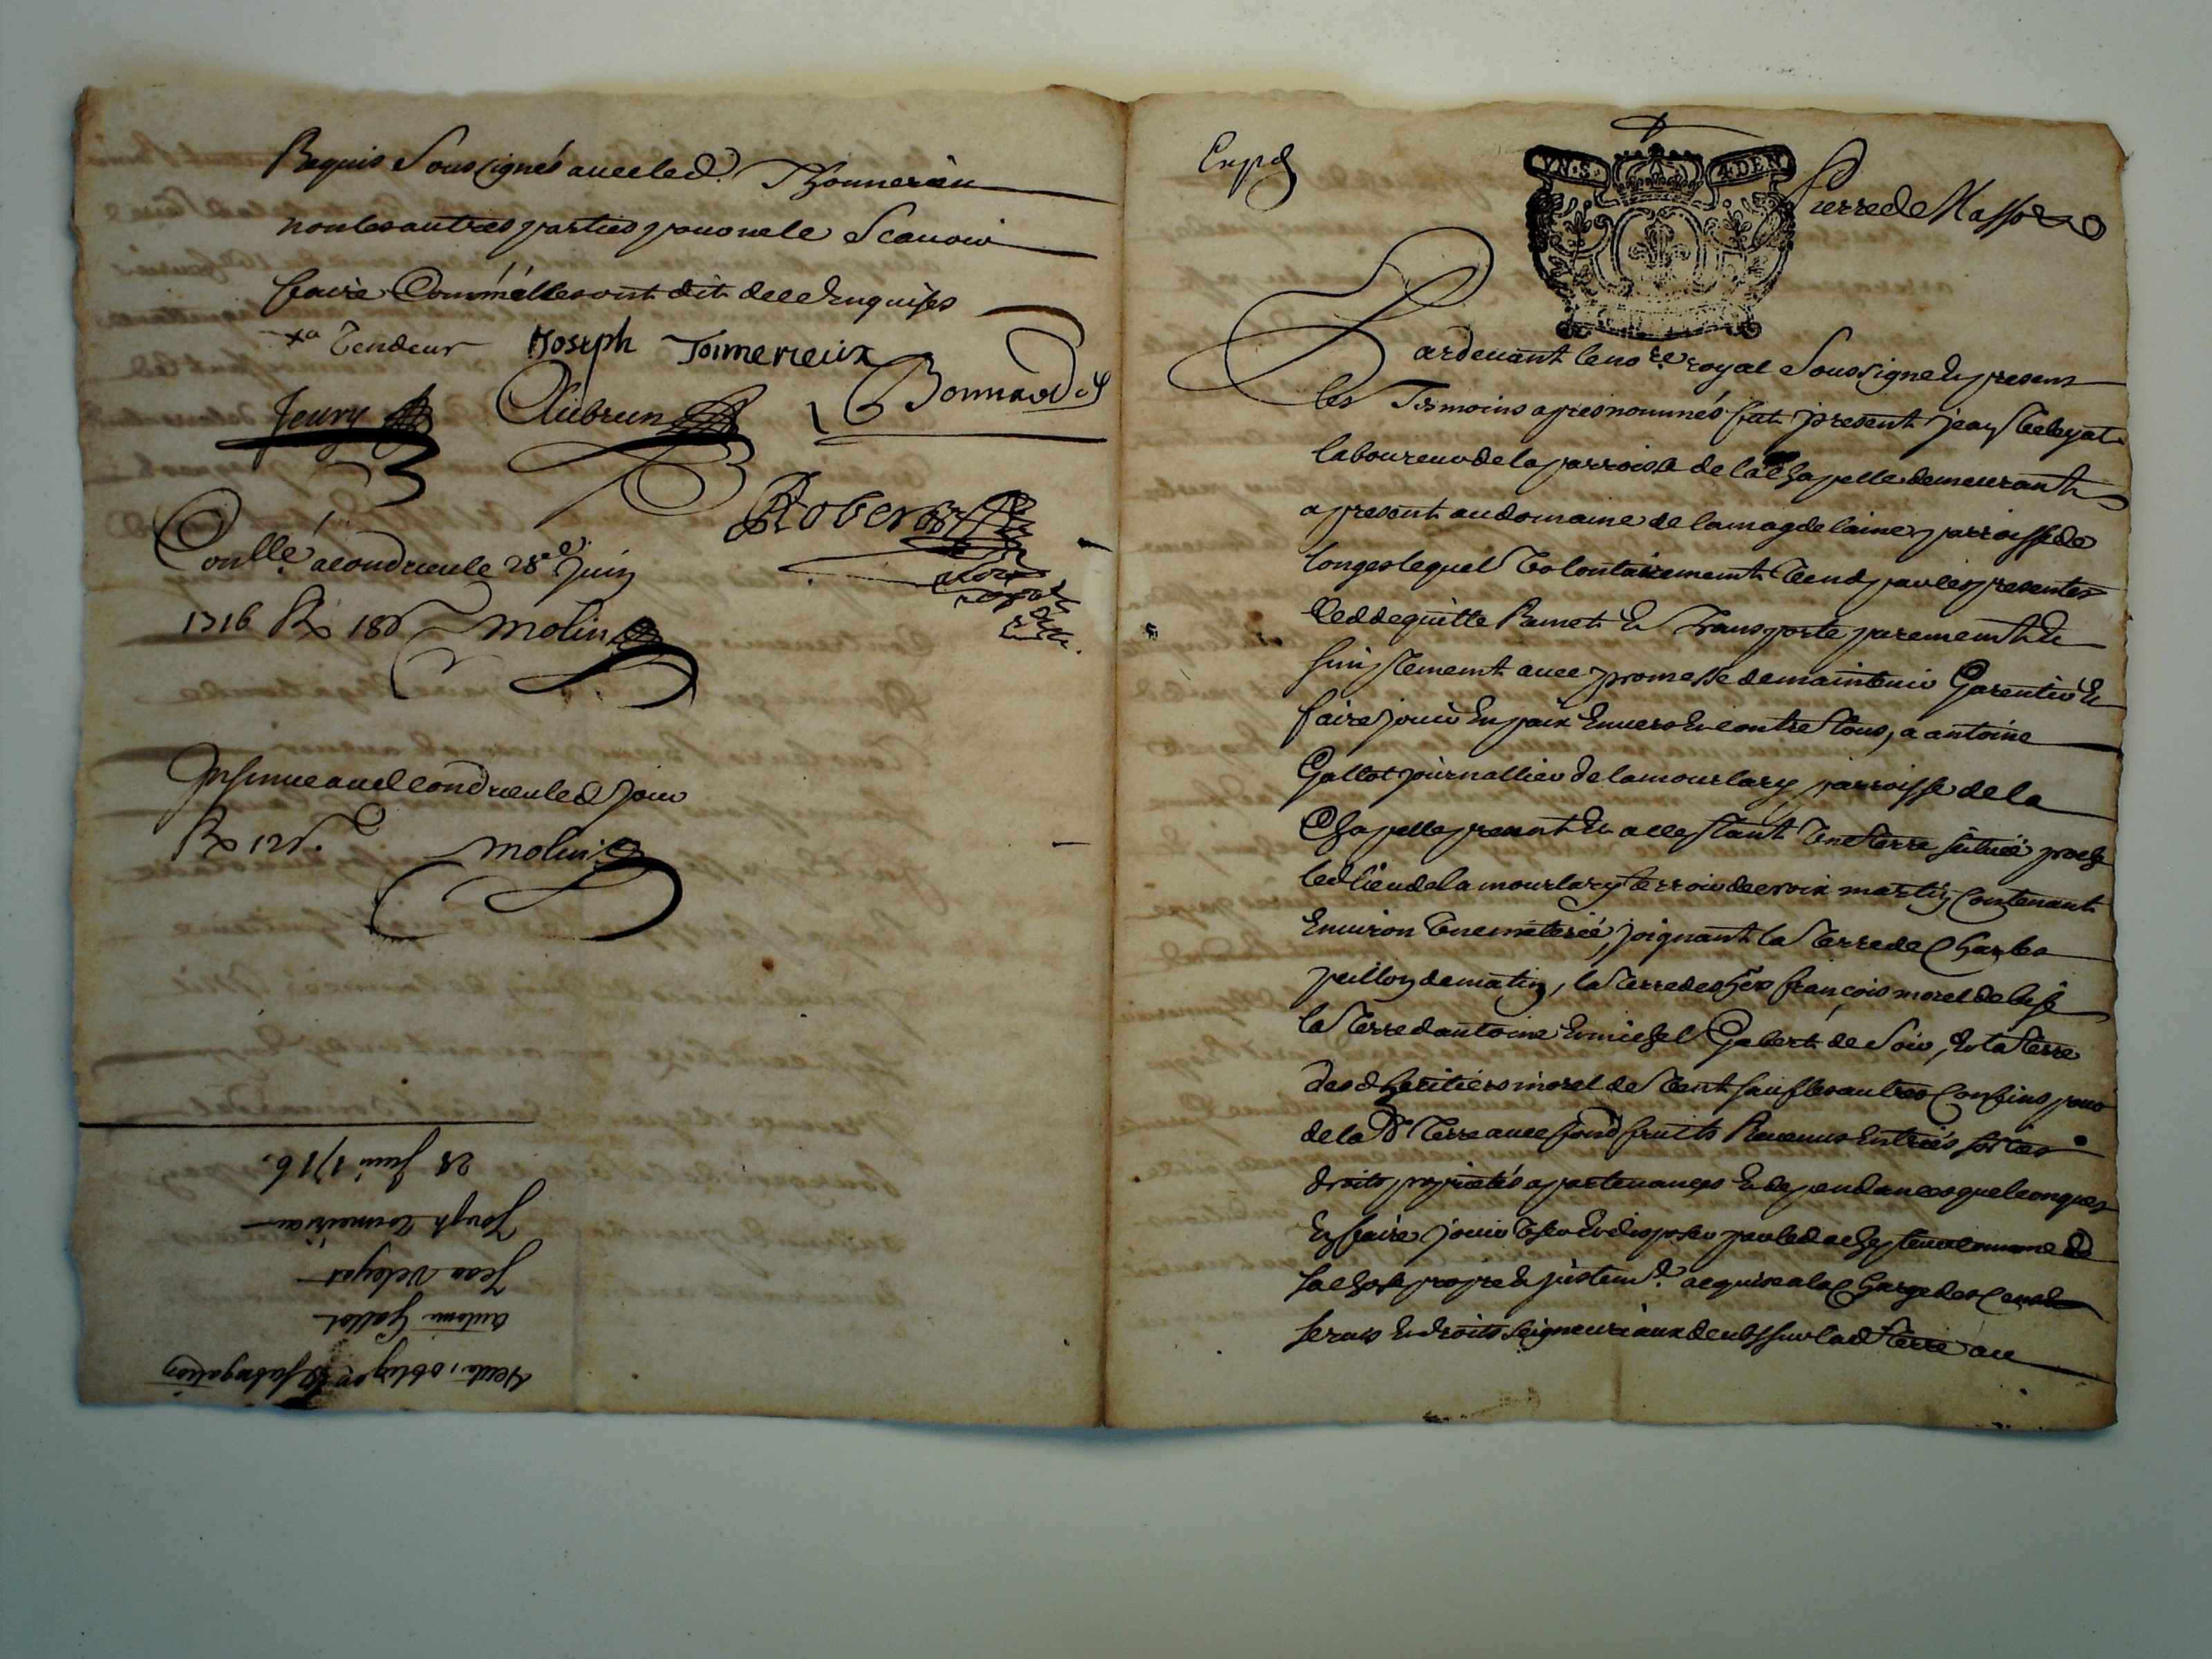 Requis Soussignés avec led. Thonnerieu
non les autres parties pour ne le Scavoir
faire Comm'elles ont dit de ce Enquises
Vendeur Joseph Tomerieux
Jeury Aubrun Bonnard
Robert
Conllé a condrieu le 28e Juin
1716 Rx 18s Molin
Insinue aud condrieu led jour
Rx 12s. Molin
28 Juin 1716.
Joseph Tonneriau
Jean Veleyat
antoine Gallot
Vente, oblig on & subrogation
Expd
YN.S. 4.DEN
Pierre de Masso
Pardevant le nore royal Soussigné Et presens
les Tesmoins apres nommés fut present jean Veleyat
laboureur de la parroisse de la Chapelle demeurant
a present au domaine de la magdelaine parroisse de
longes lequel Volontairement Vend par ces presentes
Cedde quitte Remet Et Transporte purement Et
simplement avec promesse de maintenir Garentir Et
faire jouir En paix Envers Et contre tous, a antoine
Gallot journallier de la mourlary parroisse de la
Chapelle prenant Et acceptant Une terre scituée proche
led lieu de la mourlary terroir de croix martin Contenant
Environ Une meterée, joignant la Terre de Charles
peillon de matin, la terre des hers françois morel de bise
la Terre d'antoine Et michel Gabert de Soir, Et la Terre
desd heritiers morel de Vent sauf les autres Confins pour
de lad Terre avec fond fruits Revenus Entrées sorties
droits proprietés apartenances Et dependances quelconques
En faire jouir User Et disposer par led achepteur comme de
sa chose propre Et justemt. acquise a la Charge des Cens
servis Et droits seigneuriaux deubs sur lad Terre au